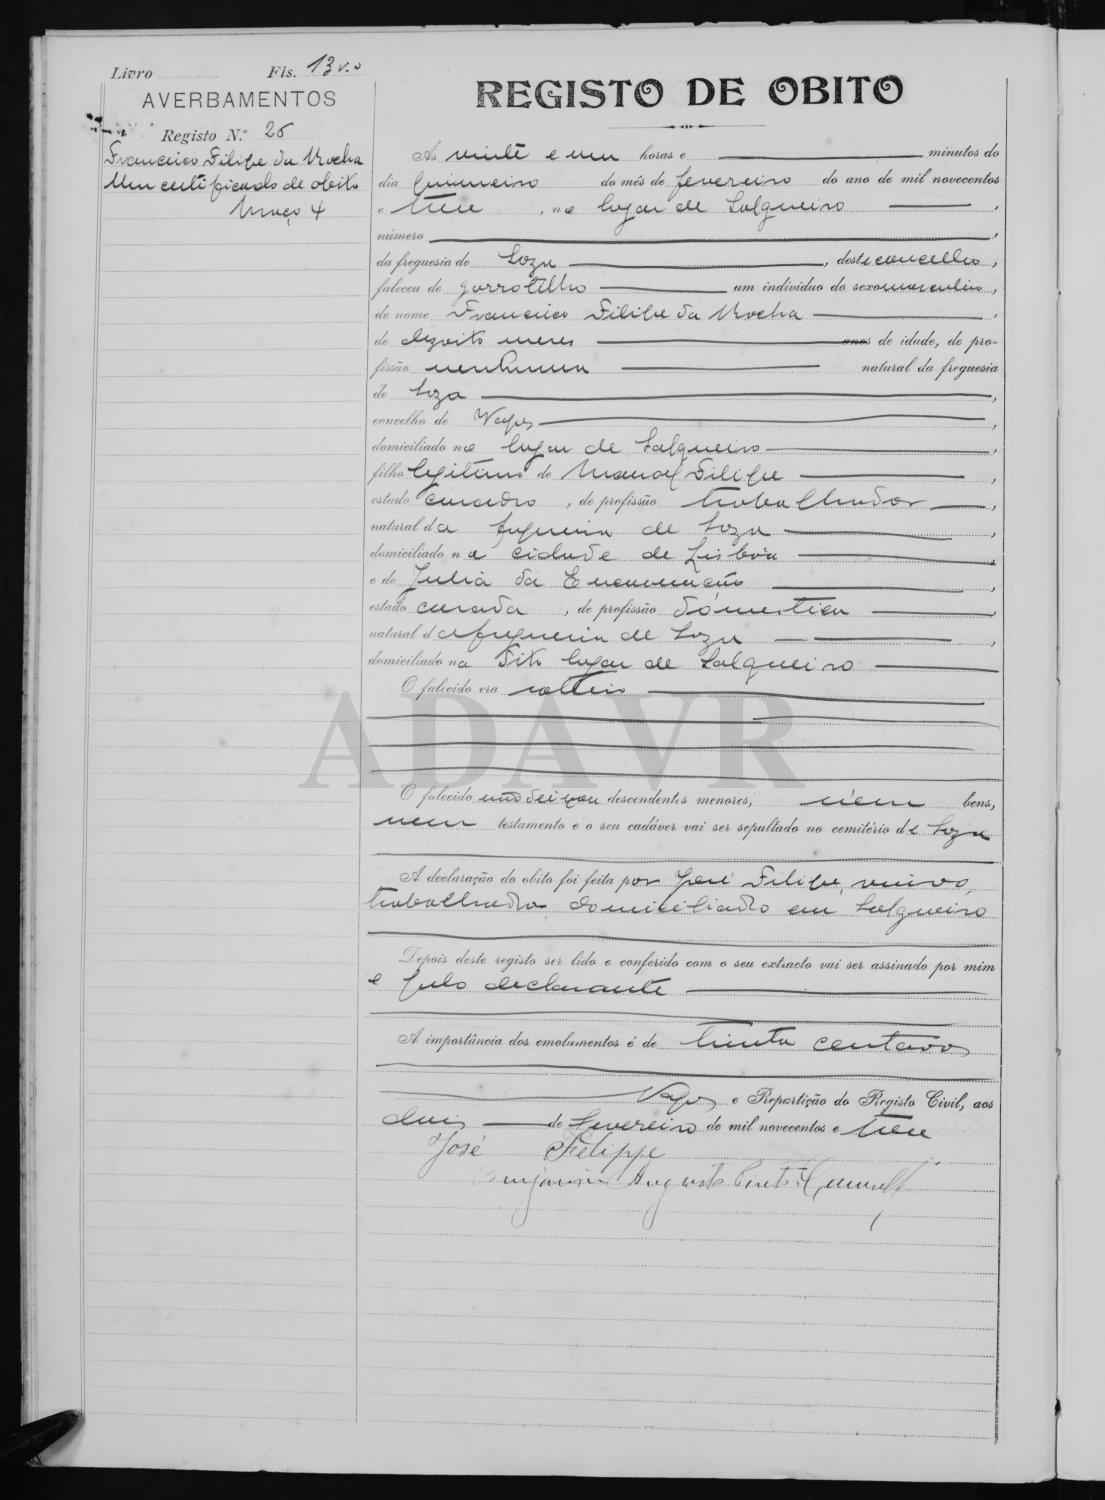 Livro Fls. 13 v.o
AVERBAMENTOS
Registo N.º 25
Francisco Filipe da Rocha
Um certificado de obito
Março 4
REGISTO DE OBITO
Ás vinte e uma horas e minutos do
dia primeiro do mês de fevereiro do ano de mil novecentos
e treze, no lugar de Salgueiro,
número
da freguesia de Soza, deste concelho,
faleceu de garrotilho um individuo do sexo masculino,
de nome Francisco Filipe da Rocha,
de dezoito meses anos de idade, de pro-
fissão nenhuma natural da freguesia
de Soza,
concelho de Vagos,
domiciliado no lugar de Salgueiro,
filho legitimo de Manoel Filipe,
estado casado, de profissão trabalhador,
natural da freguesia de Soza,
domiciliado na cidade de Lisbôa,
e de Julia da Encarnação,
estado casada, de profissão domestica,
natural da freguesia de Soza,
domiciliado no dito lugar de Salgueiro
O falecido era solteiro
ADAVR
O falecido não deixou descendentes menores, nem bens,
nem testamento e o seu cadáver vai ser sepultado no cemitério de Soza
A declaração do obito foi feita por José Filipe, viuvo,
trabalhador, domiciliado em Salgueiro
Depois deste registo ser lido e conferido com o seu extracto vai ser assinado por mim
e pelo declarante
A importância dos emolumentos é de trinta centavos
Vagos e Repartição do Registo Civil, aos
dois de Fevereiro de mil novecentos e treze
José Felippe
Benjamim Augusto